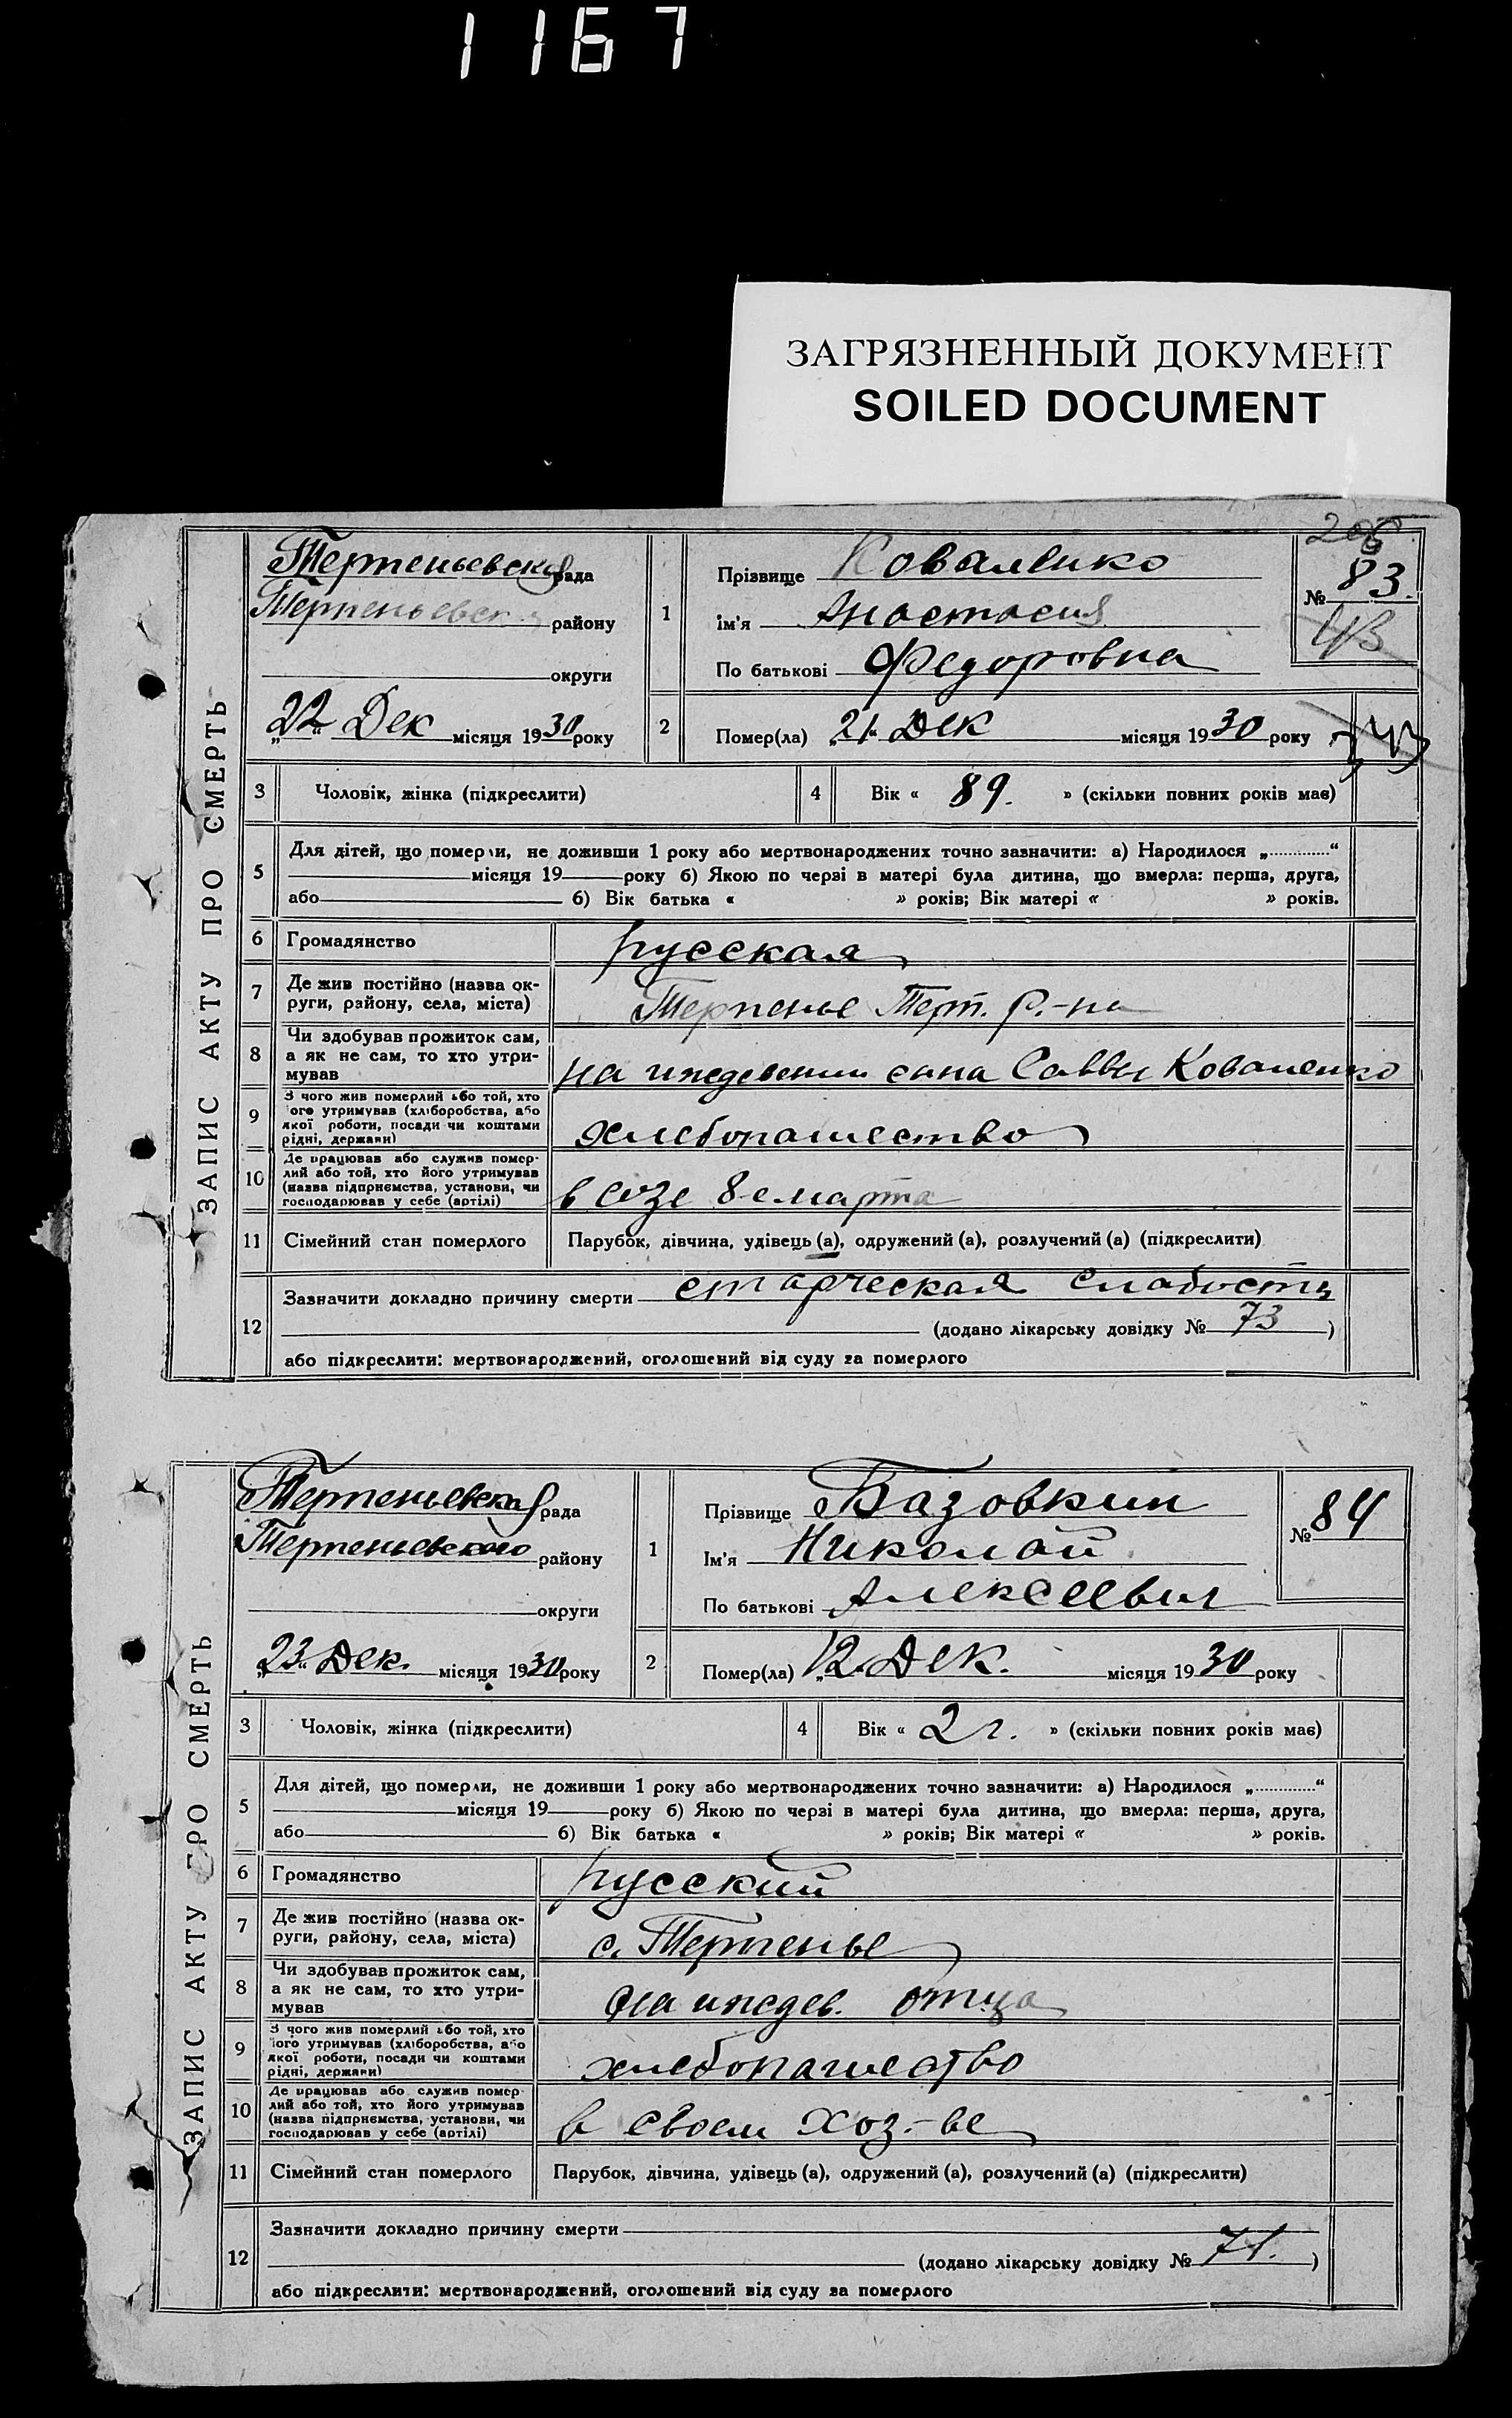 1167
ЗАГРЯЗНЕННЫЙ ДОКУМЕНТ
SOILED DOCUMENT
ЗАПИС АКТУ ПРО СМЕРТЬ
206
Терпеньевская рада
Терпеньевск району
округи
„22“ Дек місяця 1930 року
1 Прізвище Коваленко
ім'я Анастасия
По батькові Федоровна
№ 83.
43
2 Помер(ла) „21“ Дек місяця 1930 року
3 Чоловік, жінка (підкреслити)
4 Вік « 89. » (скільки повних років має)
5 Для дітей, що померли, не доживши 1 року або мертвонароджених точно зазначити: а) Народилося „............“
місяця 19 року б) Якою по черзі в матері була дитина, що вмерла: перша, друга,
або б) Вік батька « » років; Вік матері « » років.
6 Громадянство русская
7 Де жив постійно (назва округи, району, села, міста) Терпенье Терп. р.-на
8 Чи здобував прожиток сам, а як не сам, то хто утримував на иждевении сына Саввы Коваленко
9 З чого жив померлий або той, хто його утримував (хліборобства, або якої роботи, посади чи коштами рідні, держави) хлебопашество
10 Де працював або служив померлий або той, хто його утримував (назва підприємства, установи, чи господарював у себе (артілі) в созе 8 е марта
11 Сімейний стан померлого Парубок, дівчина, удівець (а), одружений (а), розлучений (а) (підкреслити)
12 Зазначити докладно причину смерти старческая слабость
(додано лікарську довідку № 73 )
або підкреслити: мертвонароджений, оголошений від суду за померлого
ЗАПИС АКТУ ПРО СМЕРТЬ
Терпеньевская рада
Терпеньевского району
округи
„23“ Дек. місяця 1930 року
1 Прізвище Базовкин
Ім'я Николай
По батькові Алексеевич
№ 84
2 Помер(ла) „12“ Дек. місяця 1930 року
3 Чоловік, жінка (підкреслити)
4 Вік « 2 г. » (скільки повних років має)
5 Для дітей, що померли, не доживши 1 року або мертвонароджених точно зазначити: а) Народилося „............“
місяця 19 року б) Якою по черзі в матері була дитина, що вмерла: перша, друга,
або б) Вік батька « » років; Вік матері « » років.
6 Громадянство русский
7 Де жив постійно (назва округи, району, села, міста) с. Терпенье
8 Чи здобував прожиток сам, а як не сам, то хто утримував на иждев. отца
9 З чого жив померлий або той, хто його утримував (хліборобства, або якої роботи, посади чи коштами рідні, держави) хлебопашество
10 Де працював або служив померлий або той, хто його утримував (назва підприємства, установи, чи господарював у себе (артілі) в своем хоз.-ве
11 Сімейний стан померлого Парубок, дівчина, удівець (а), одружений (а), розлучений (а) (підкреслити)
12 Зазначити докладно причину смерти
(додано лікарську довідку № 71. )
або підкреслити: мертвонароджений, оголошений від суду за померлого